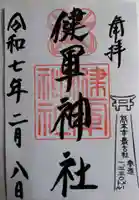 奉拝
健軍神社
令和七年二月八日
健軍神社